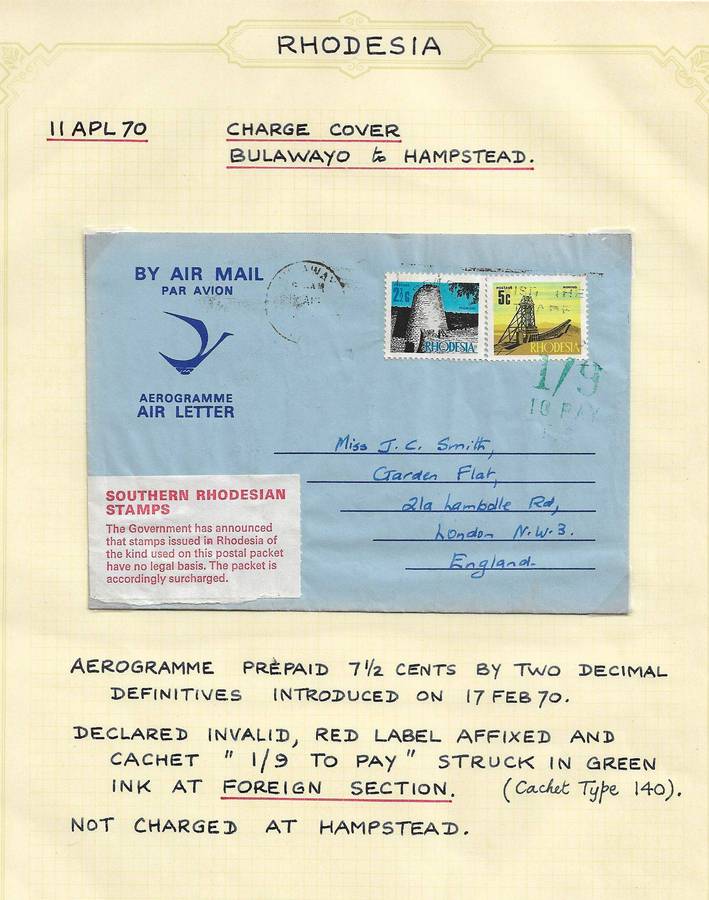 RHODESIA
11 APL 70
CHARGE COVER
BULAWAYO to HAMPSTEAD.
BY AIR MAIL
PAR AVION
AEROGRAMME
AIR LETTER
2½c
RHODESIA
postage
5c
RHODESIA
1/9
TO PAY
Miss J. C. Smith,
Garden Flat,
21a Lambolle Rd,
London N.W.3.
England.
SOUTHERN RHODESIAN
STAMPS
The Government has announced
that stamps issued in Rhodesia of
the kind used on this postal packet
have no legal basis. The packet is
accordingly surcharged.
AEROGRAMME PREPAID 7½ CENTS BY TWO DECIMAL
DEFINITIVES INTRODUCED ON 17 FEB 70.
DECLARED INVALID, RED LABEL AFFIXED AND
CACHET " 1/9 TO PAY " STRUCK IN GREEN
INK AT FOREIGN SECTION. (Cachet Type 140).
NOT CHARGED AT HAMPSTEAD.